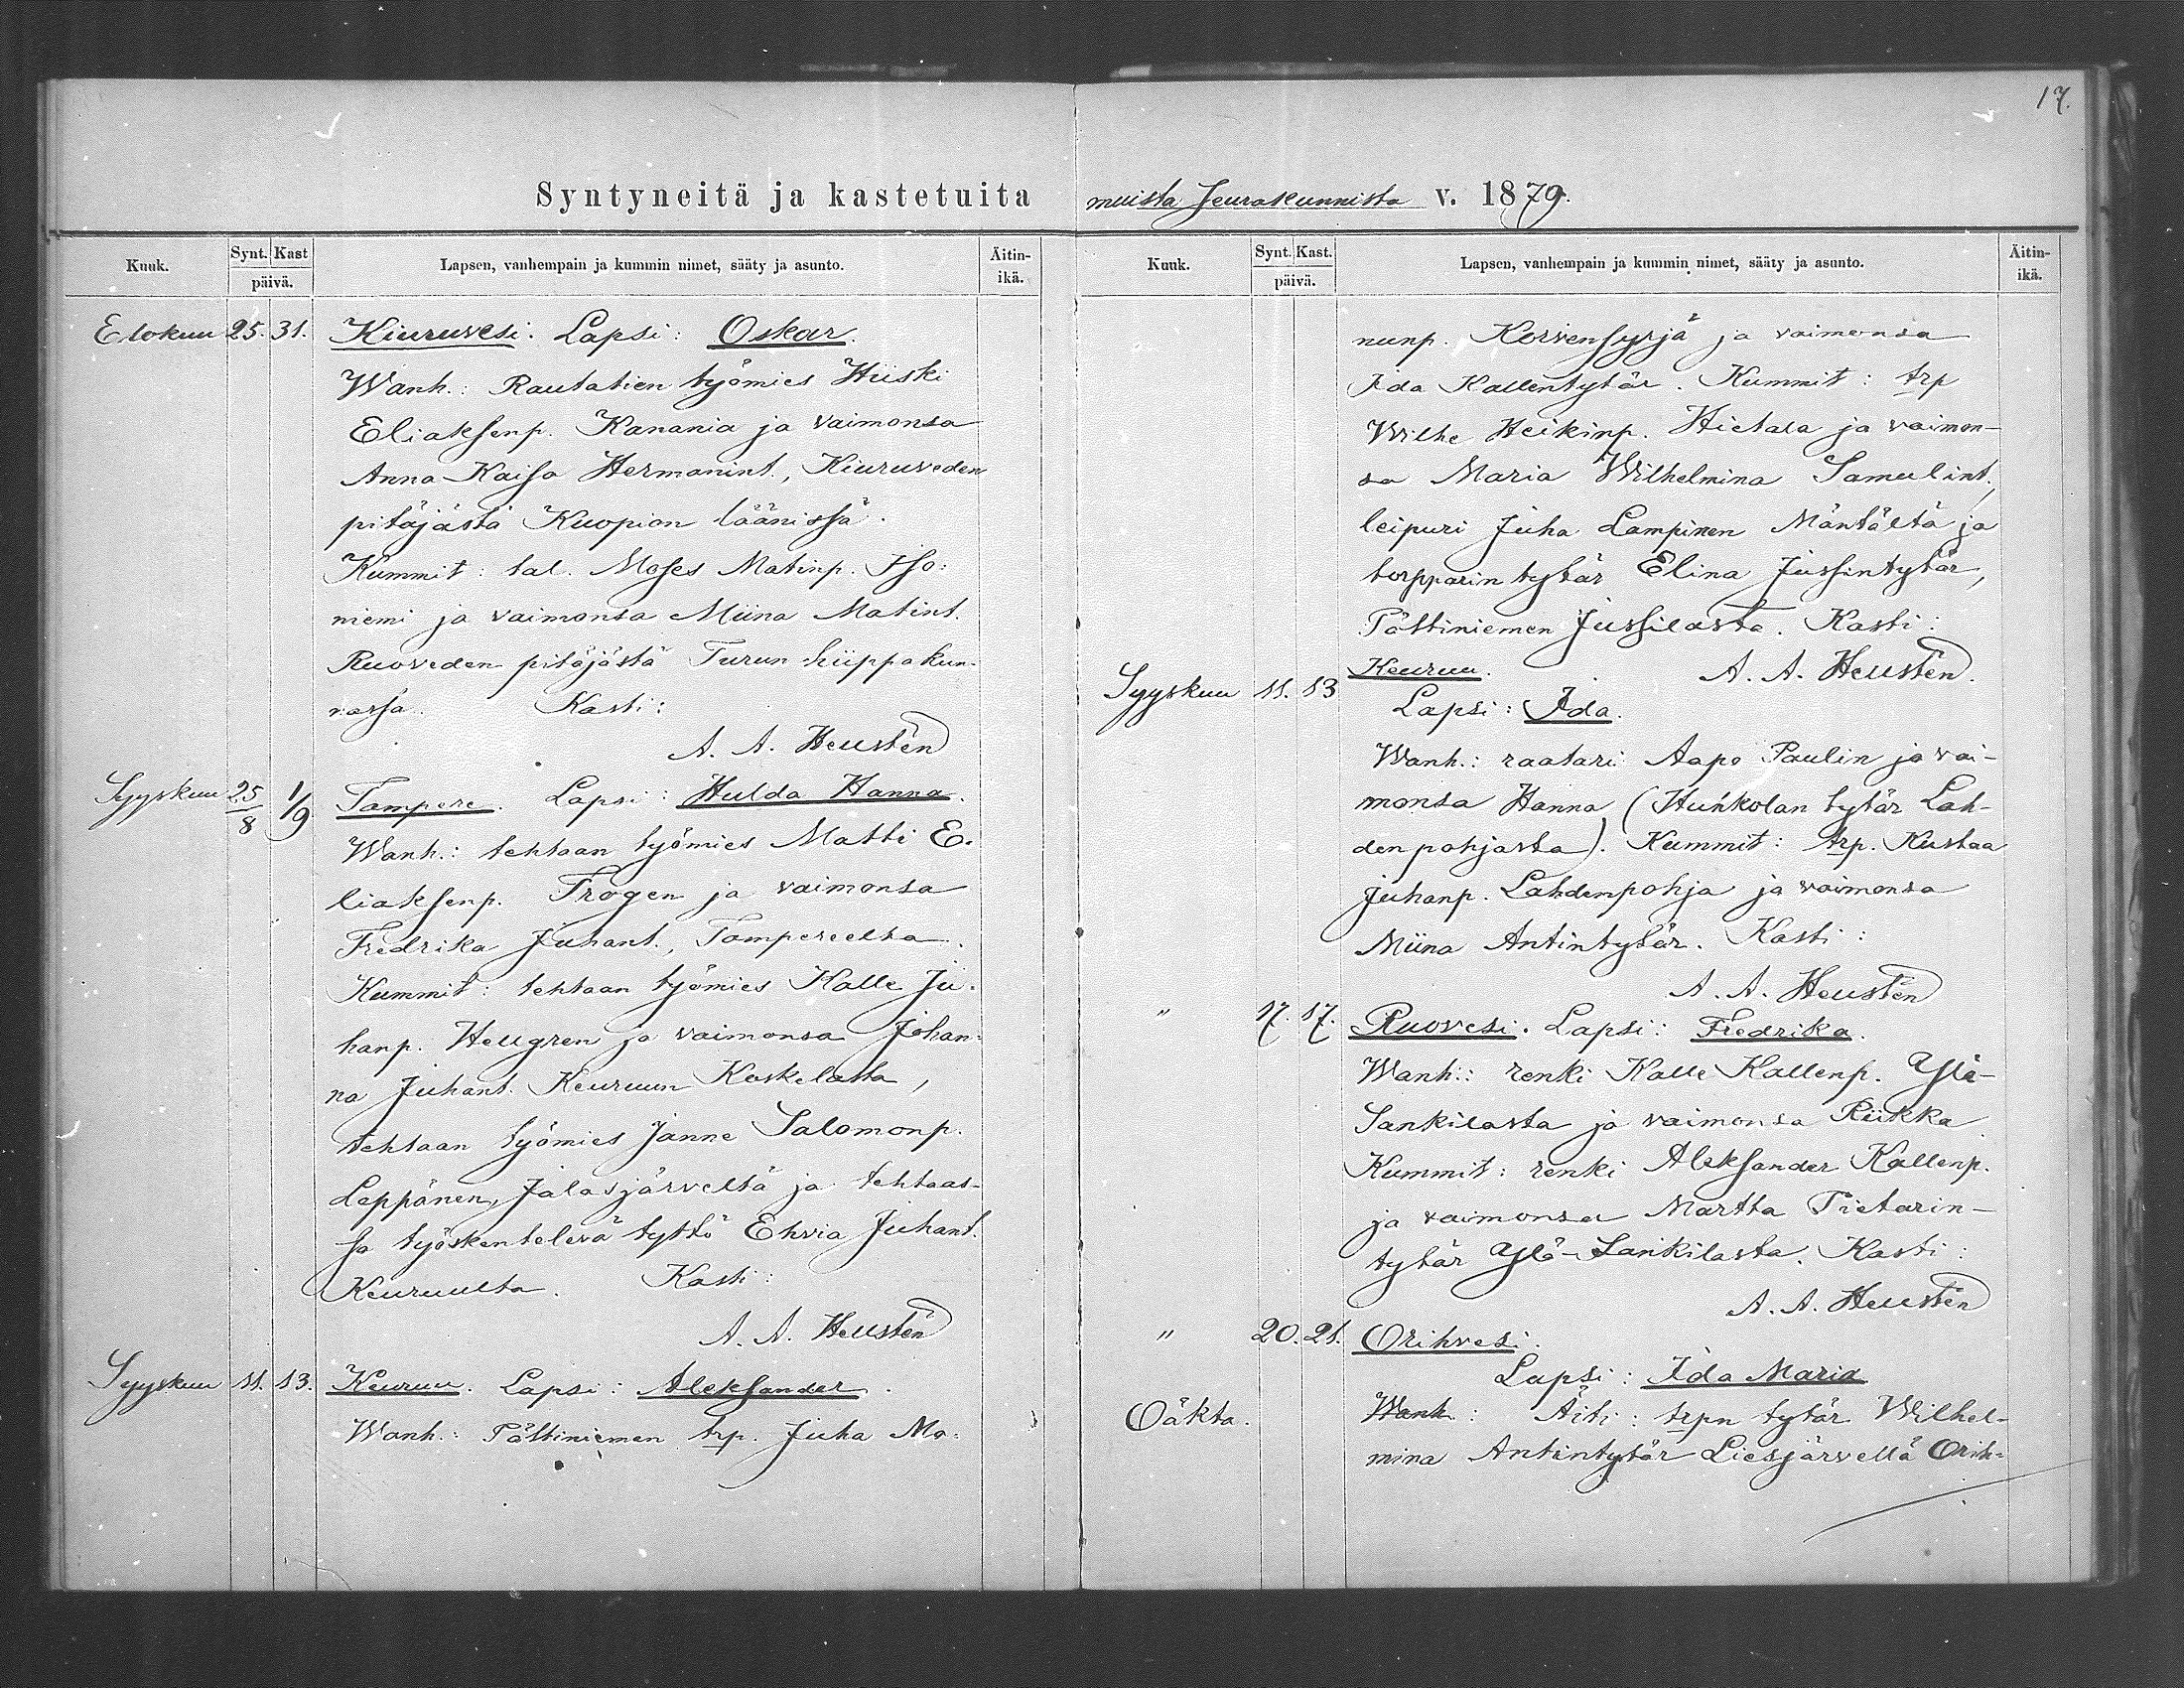 17.
Syntyneitä ja kastetuita muista seurakunnista v. 1879.
Kuuk.
Synt. Kast
päivä.
Lapsen, vanhempain ja kummin nimet, sääty ja asunto.
Äitin-
ikä.
Elokuu 25. 31. Kiuruvesi. Lapsi: Oskar.
Wanh.: Rautatien työmies Hiiski
Eliaksenp. Kanania ja vaimonsa
Anna Kaisa Hermanint., Kiuruveden
pitäjästä Kuopion läänissä.
Kummit: tal. Moses Matinp. Iso-
niemi ja vaimonsa Miina Matint.
Ruoveden pitäjästä Turun hiippakun-
nassa. Kasti:
A. A. Heusten
Syyskuu 25/8 1/9 Tampere. Lapsi: Hulda Hanna.
Wanh.: tehtaan työmies Matti E-
liaksenp. Frogen ja vaimonsa
Fredrika Juhant., Tampereelta.
Kummit: tehtaan työmies Kalle Ju-
hanp. Hellgren ja vaimonsa Johan-
na Juhant. Keuruun Koskelasta,
tehtaan työmies Janne Salomonp.
Leppänen, Jalasjärveltä ja tehtaas-
sa työskentelevä tyttö Ehvia Juhant.
Keuruulta. Kasti:
A. A. Heusten
Syyskuu 11. 13. Keuruu. Lapsi: Aleksander.
Wanh.: Pältiniemen trp. Juha Ma-
Kuuk.
Synt. Kast.
päivä.
Lapsen, vanhempain ja kummin nimet, sääty ja asunto.
Äitin-
ikä.
nunp. Korvensyrjä ja vaimonsa
Ida Kallentytär. Kummit: trp
Wilhe Heikinp. Hietala ja vaimon-
sa Maria Wilhelmina Samulint.,
leipuri Juha Lampinen Mäntältä ja
torpparin tytär Elina Jussintytär,
Pältiniemen Jussilasta. Kasti:
A. A. Heusten.
Syyskuu 11. 13 Keuruu.
Lapsi: Ida.
Wanh.: raatari Aapo Paulin ja vai-
monsa Hanna (Huhkolan tytär Lah-
denpohjasta). Kummit: trp. Kustaa
Juhanp. Lahdenpohja ja vaimonsa
Miina Antintytär. Kasti:
A. A. Heusten
" 17. 17. Ruovesi. Lapsi: Fredrika.
Wanh.: renki Kalle Kallenp. Ylä-
Sankilasta ja vaimonsa Riikka
Kummit: renki Aleksander Kallenp.
ja vaimonsa Martta Pietarin-
tytär Ylä-Sankilasta. Kasti:
A. A. Heusten
" 20. 21. Orihvesi.
Lapsi: Ida Maria
Oäkta. Wanh: Äiti: trpn tytär Wilhel-
mina Antintytär Liesjärvellä Orih-